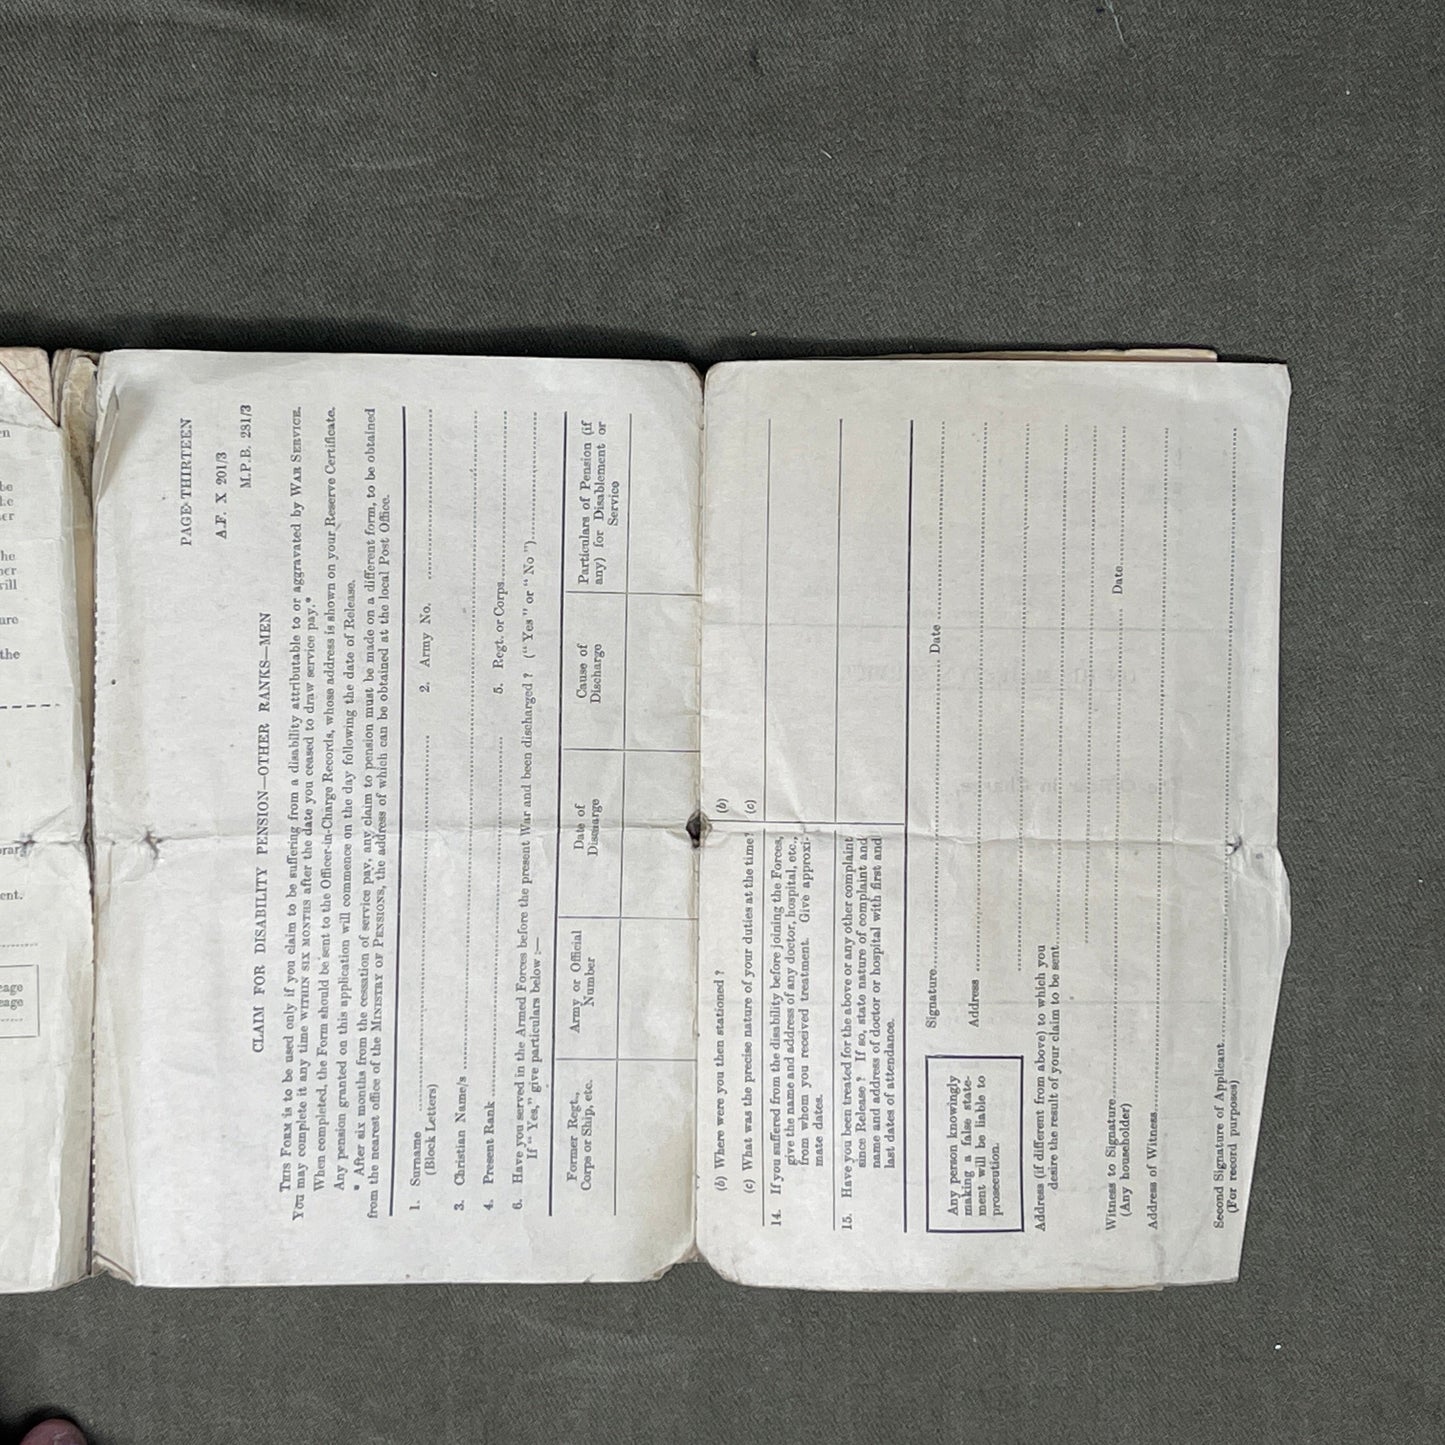 PAGE THIRTEEN
A.F. X 201/3
M.P.B. 281/3
CLAIM FOR DISABILITY PENSION—OTHER RANKS—MEN
THIS FORM is to be used only if you claim to be suffering from a disability attributable to or aggravated by WAR SERVICE.
You may complete it any time WITHIN SIX MONTHS after the date you ceased to draw service pay.*
When completed, the Form should be sent to the Officer-in-Charge Records, whose address is shown on your Reserve Certificate.
Any pension granted on this application will commence on the day following the date of Release.
* After six months from the cessation of service pay, any claim to pension must be made on a different form, to be obtained
from the nearest office of the MINISTRY OF PENSIONS, the address of which can be obtained at the local Post Office.
1. Surname 2. Army No.
(Block Letters)
3. Christian Name/s
4. Present Rank 5. Regt. or Corps
6. Have you served in the Armed Forces before the present War and been discharged ? (" Yes " or " No ")
If " Yes," give particulars below :—
Former Regt., Corps or Ship, etc.
Army or Official Number
Date of Discharge
Cause of Discharge
Particulars of Pension (if any) for Disablement or Service
(b) Where were you then stationed ? (b)
(c) What was the precise nature of your duties at the time? (c)
14. If you suffered from the disability before joining the Forces,
give the name and address of any doctor, hospital, etc.,
from whom you received treatment. Give approxi-
mate dates.
15. Have you been treated for the above or any other complaint
since Release ? If so, state nature of complaint and
name and address of doctor or hospital with first and
last dates of attendance.
Any person knowingly
making a false state-
ment will be liable to
prosecution.
Signature Date
Address
Address (if different from above) to which you
desire the result of your claim to be sent
Witness to Signature Date
(Any householder)
Address of Witness
Second Signature of Applicant
(For record purposes)
the
are
ent.